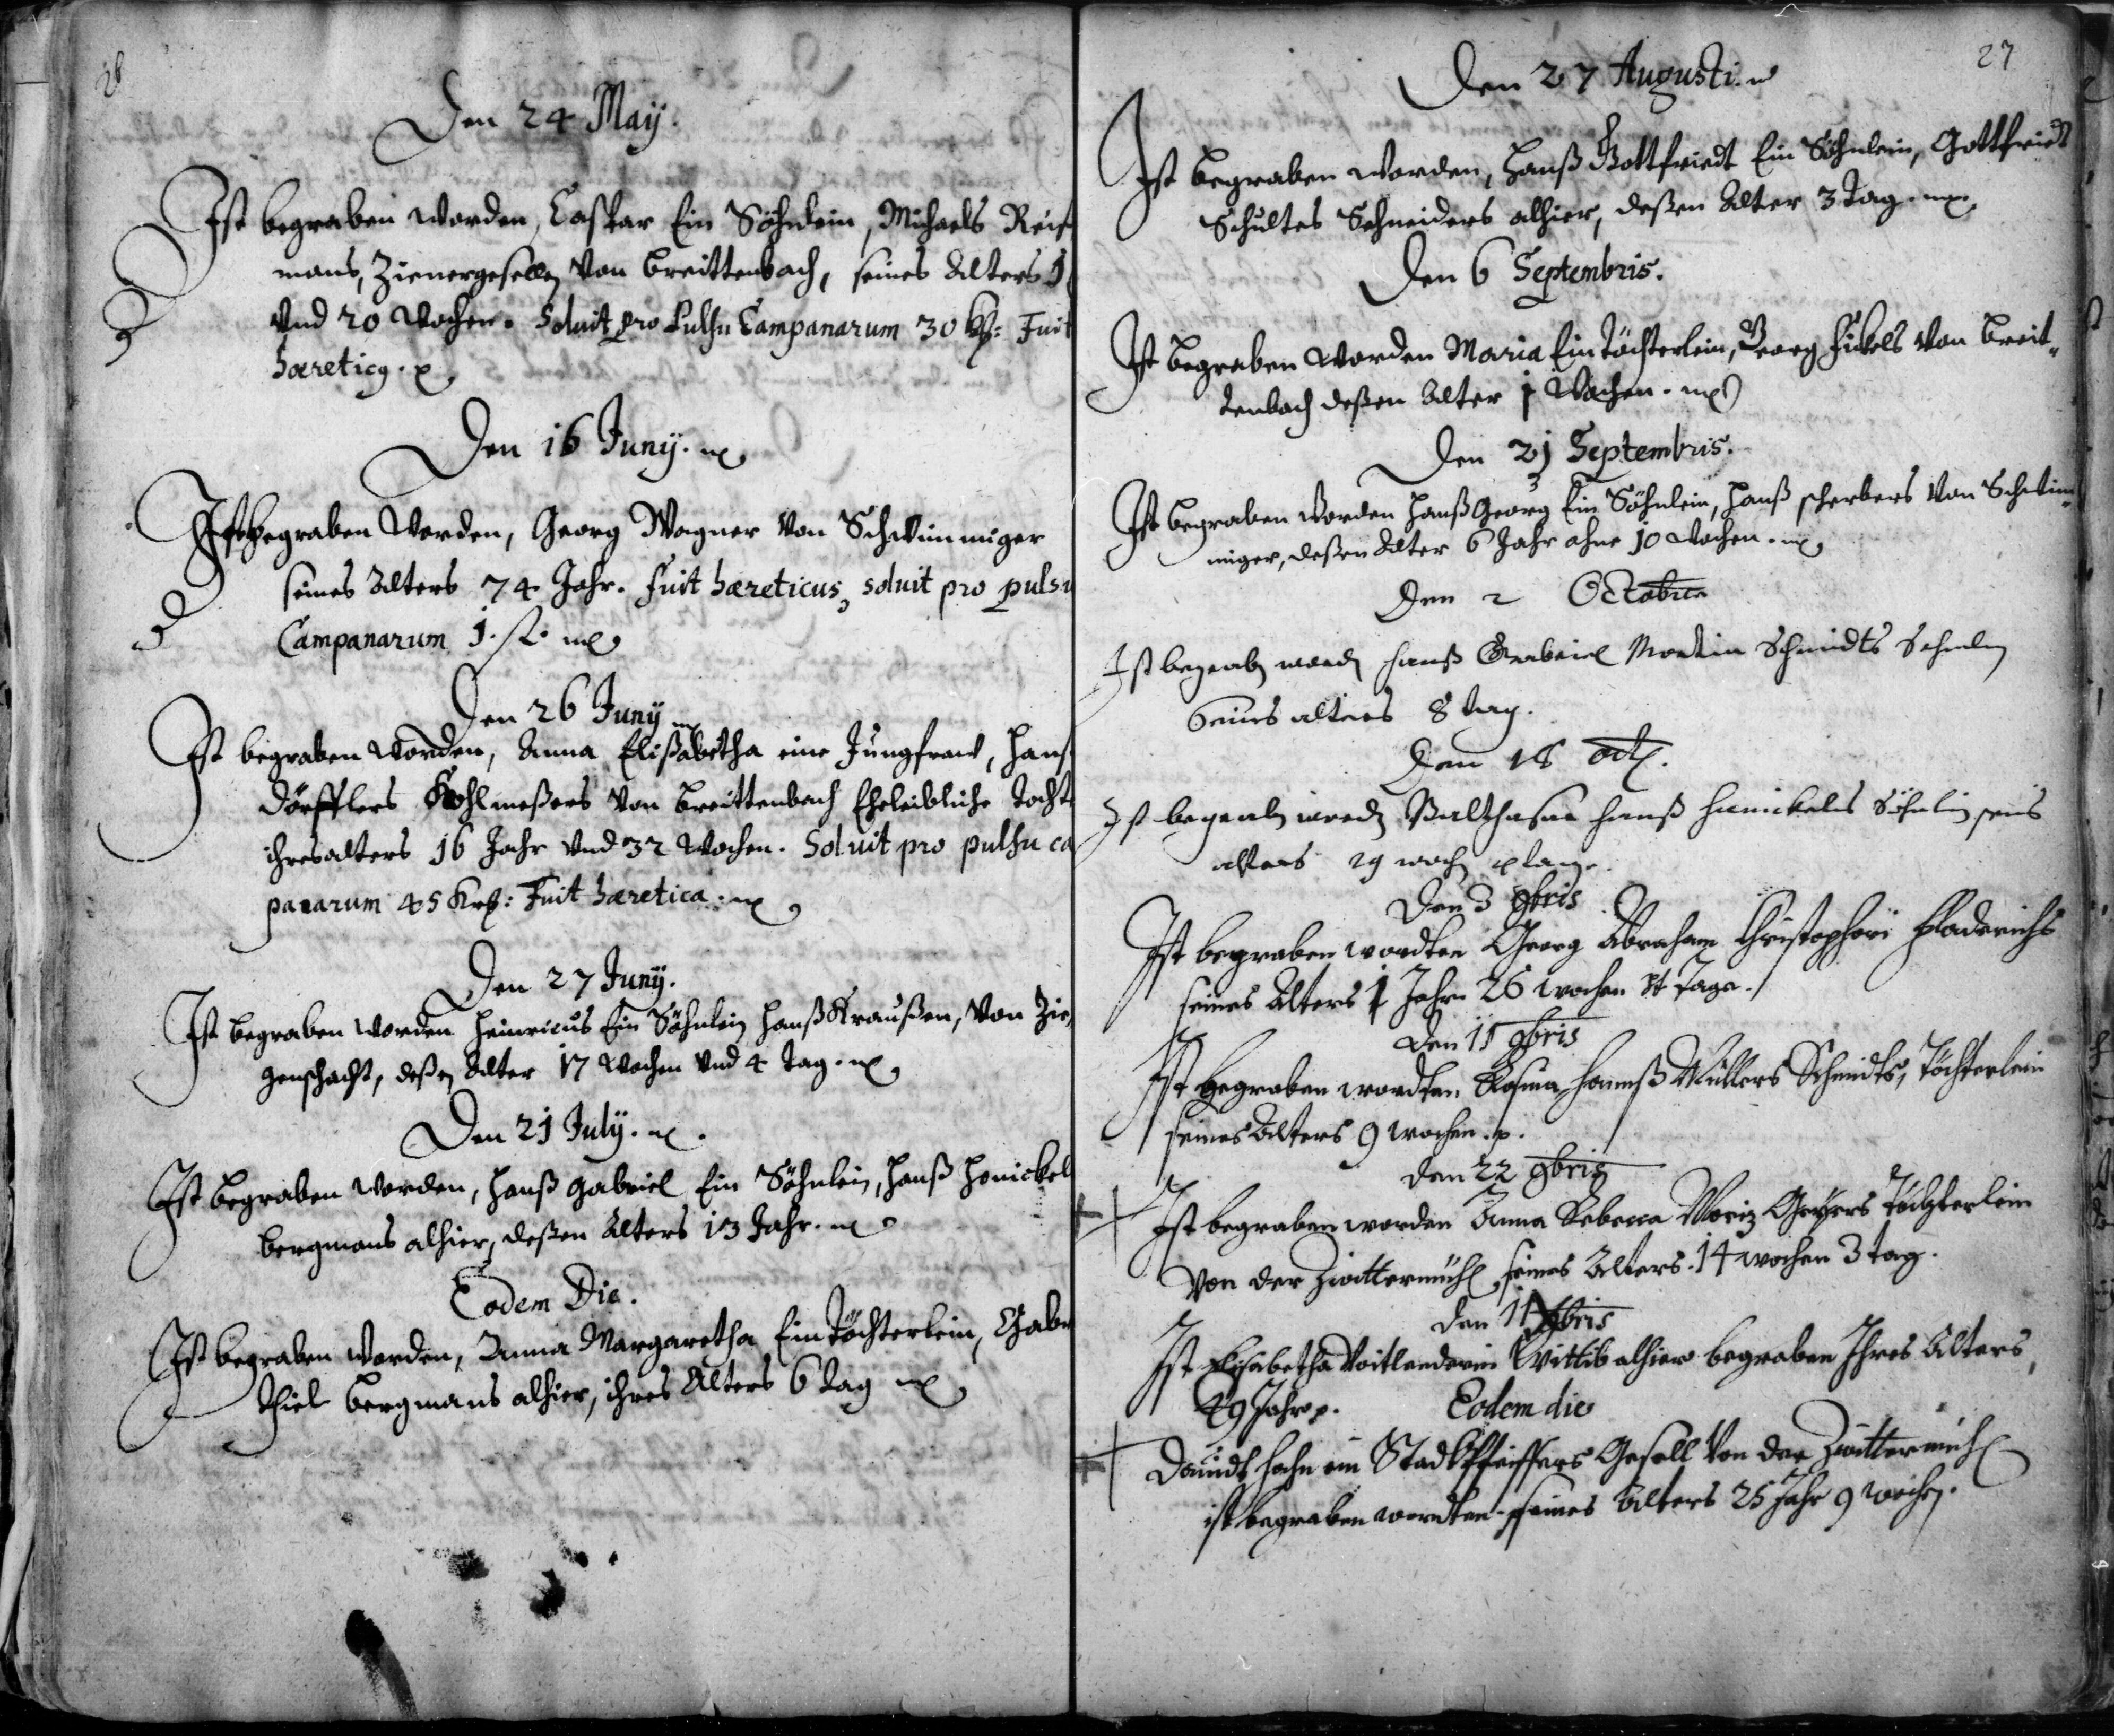 26
Den 24 May.
Ist begraben worden, Caspar Ein Söhnlein, Michaels Reis
mans, Zienergesellen von Breittenbach, seines Alters 1
vnd 20 Wochen. Soluit pro Pulsu Campanarum 30 Kr: Fuit
hæreticus.
Den 16 Juny.
Ist begraben Worden, Georg Wagner von Schwimmiger
seines Alters 74 Jahr. fuit hæreticus, soluit pro pulsu
Campanarum 1. fl.
Den 26 Juny
Ist begraben worden, Anna Elisabetha eine Jungfraw, Hanß
Dörfflers Kohlmeßers von Breittenbach Eheleibliche Tocht
ihres alters 16 Jahr vnd 32 Wochen. Soluit pro pulsu ca
panarum 45 Kr: Fuit hæretica.
Den 27 Juny.
Ist begraben worden Heinricus Ein Söhnlein Hanß Kraußen, von Zie
genschacht, deßen Alter 17 Wochen vnd 4 tag.
Den 21 July.
Ist begraben worden, Hanß Gabriel Ein Söhnlein, Hanß Honickel
bergmans alhier, deßen Alters 13 Jahr.
Eodem Die.
Ist begraben worden, Anna Margaretha Ein Töchterlein, Gabr
Thiel bergmans alhier, ihres Alters 6 tag
27
Den 27 Augusti.
Ist begraben worden, Hanß Gottfriedt Ein Söhnlein, Gottfriedt
Schultes Schneiders alhier, deßen Alter 3 tag.
Den 6 Septembris.
Ist begraben worden Maria Ein Töchterlein, Georg Fickels von Breit„
tenbach deßen Alter 1 Wochen.
Den 21 Septembris.
Ist begraben worden Hanß Georg Ein Söhnlein, Hanß scherbers von Schwim„
miger, deßen Alter 6 Jahr ohne 10 Wochen.
Den 2 Octobris
Ist begrab word Hanß Gabriel Martin Schmidts Sehnlen
Seines alters 8 tag.
Den 18 oct.
Ist begrab word Balthasar Hanß Hanickels Söhnlin seins
alters 29 woch
Den 3 9bris
Ist begraben wordten Georg Abraham Christophori Fladerichs
seines Alters 1 Jahr 26 wochen Tage.
Den 11 9bris
Ist begraben wordten Rosina Hannß Müllers Schmidts, Töchterlein
seines Alters 9 wochen.
den 22 9bris
Ist begraben worden Anna Rebecca Moriz Geyers Töchterlein
Von der Zwittermühl seines Alters 14 wochen 3 tag.
den 11 Xbris
Ist Elisabetha Voitlenderin Wittib alhier begraben Ihres Alters,
49 Jahr. Eodem die
Dauidt Hahn ein Stadtpfeiffers Gesell Von der Zwittermühl
ist begraben wordten. seines Alters 25 Jahr 9 wochen.